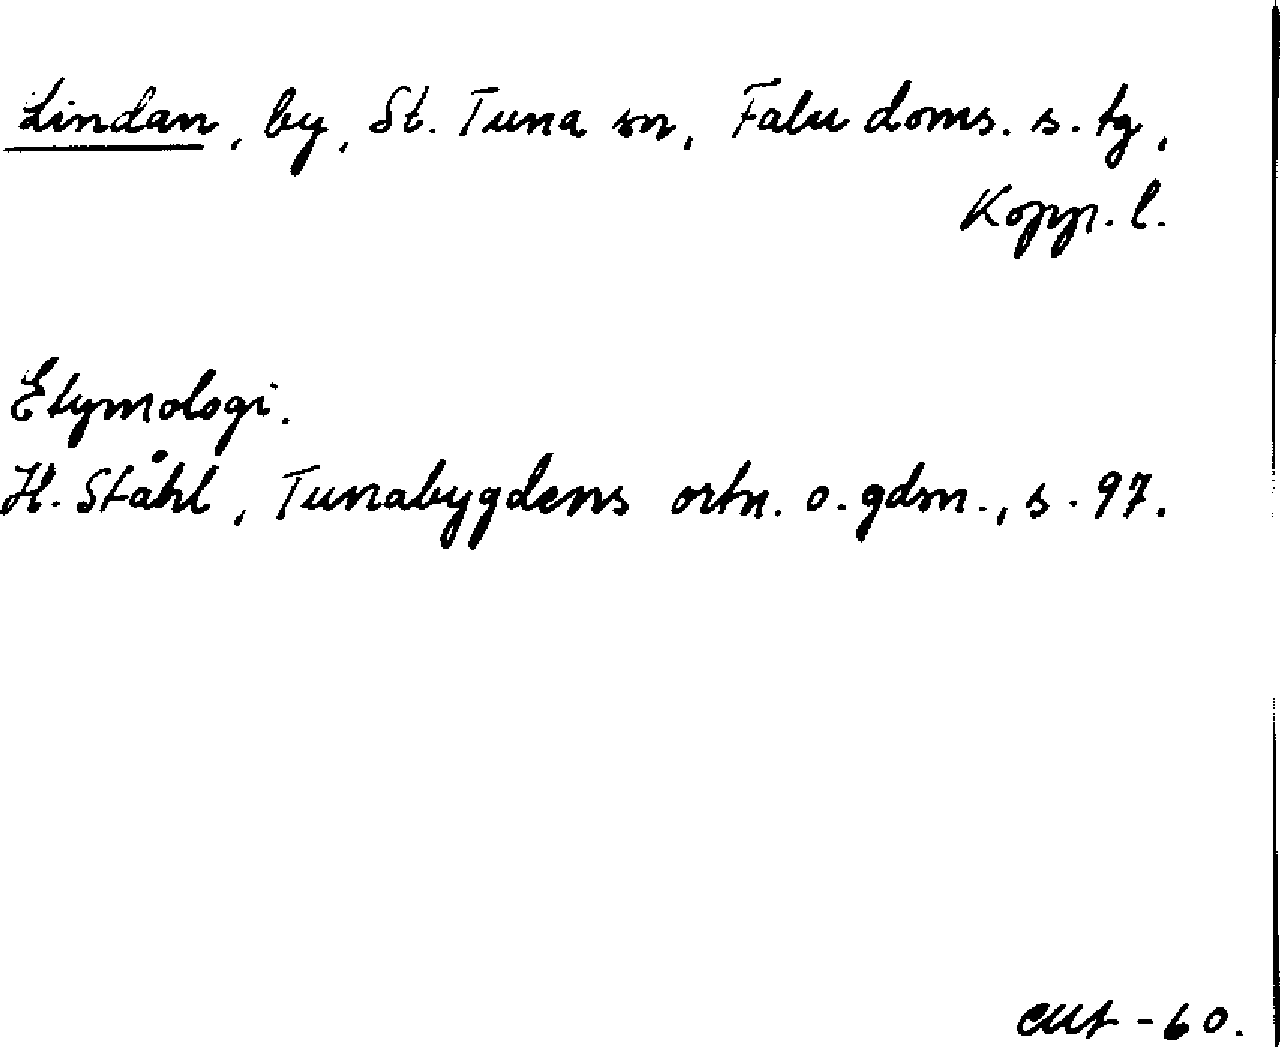 Lindan, by, St. Tuna sn, Falu doms. s. tg,
Kopp. l.
Etymologi.
H. Ståhl, Tunabygdens ortn. o. gdsn., s. 97.
-60.